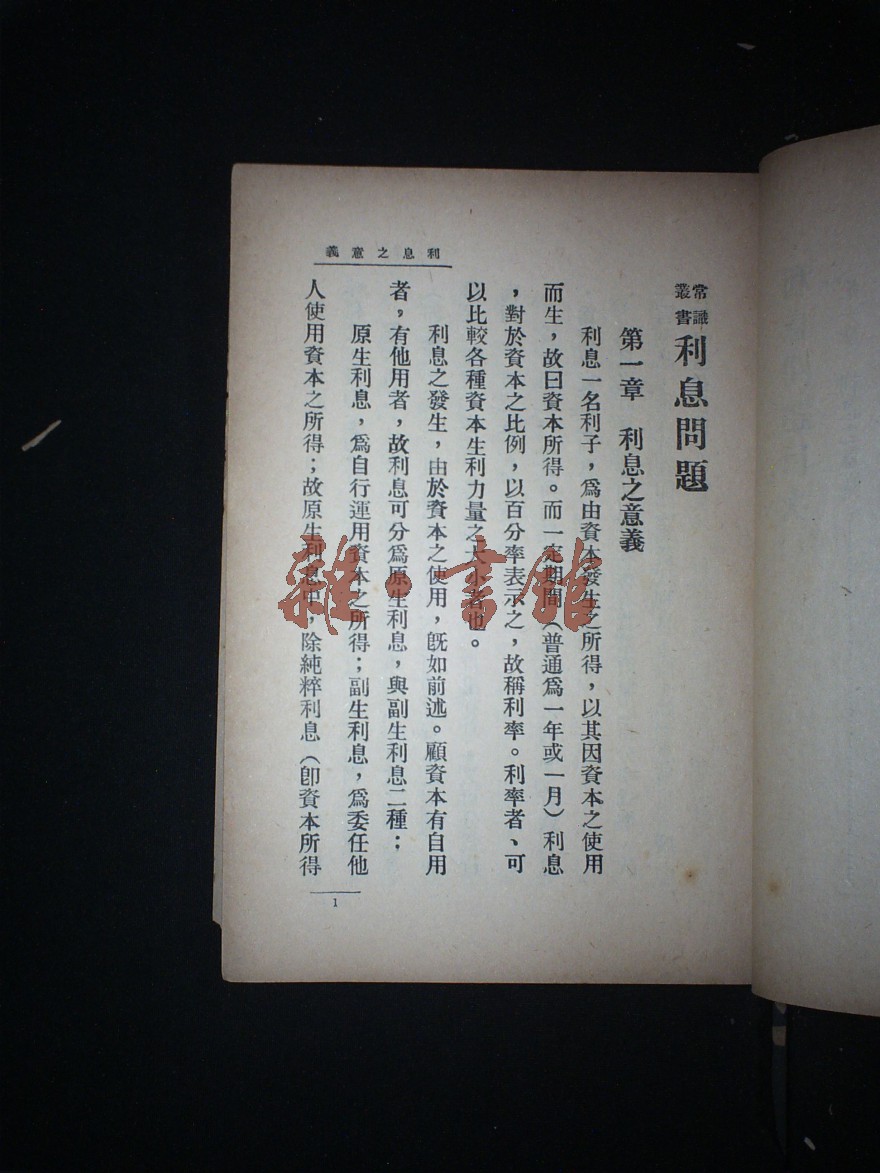 常識叢書
利息問題
第一章　利息之意義
利息一名利子，爲由資本發生之所得，以其因資本之使用
而生，故曰資本所得。而一定期間（普通爲一年或一月）利息
，對於資本之比例，以百分率表示之，故稱利率。利率者、可
以比較各種資本生利力量之大小者也。
利息之發生，由於資本之使用，既如前述。顧資本有自用
者，有他用者，故利息可分爲原生利息，與副生利息二種；
原生利息，爲自行運用資本之所得；副生利息，爲委任他
人使用資本之所得；故原生利息中，除純粹利息（卽資本所得
利息之意義
1
雜·書館